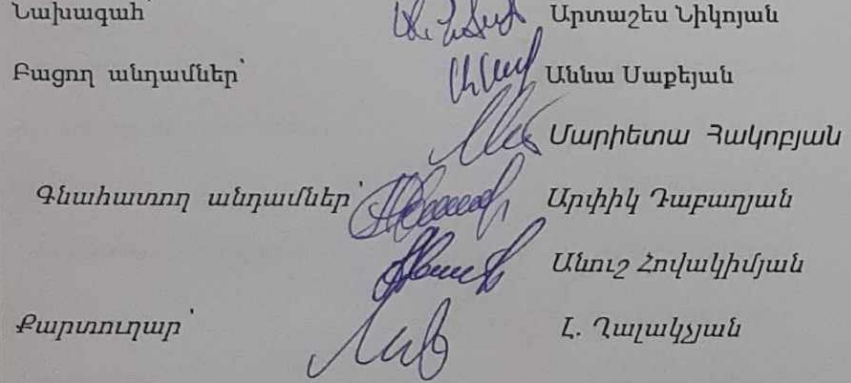 Նախագահ՝ Արտաշես Նիկոյան
Բացող անդամներ՝ Աննա Սաքեյան
Մարիետա Հակոբյան
Գնահատող անդամներ՝ Արփիկ Դաբաղյան
Անուշ Հովակիմյան
Քարտուղար՝ Լ. Ղալակչյան